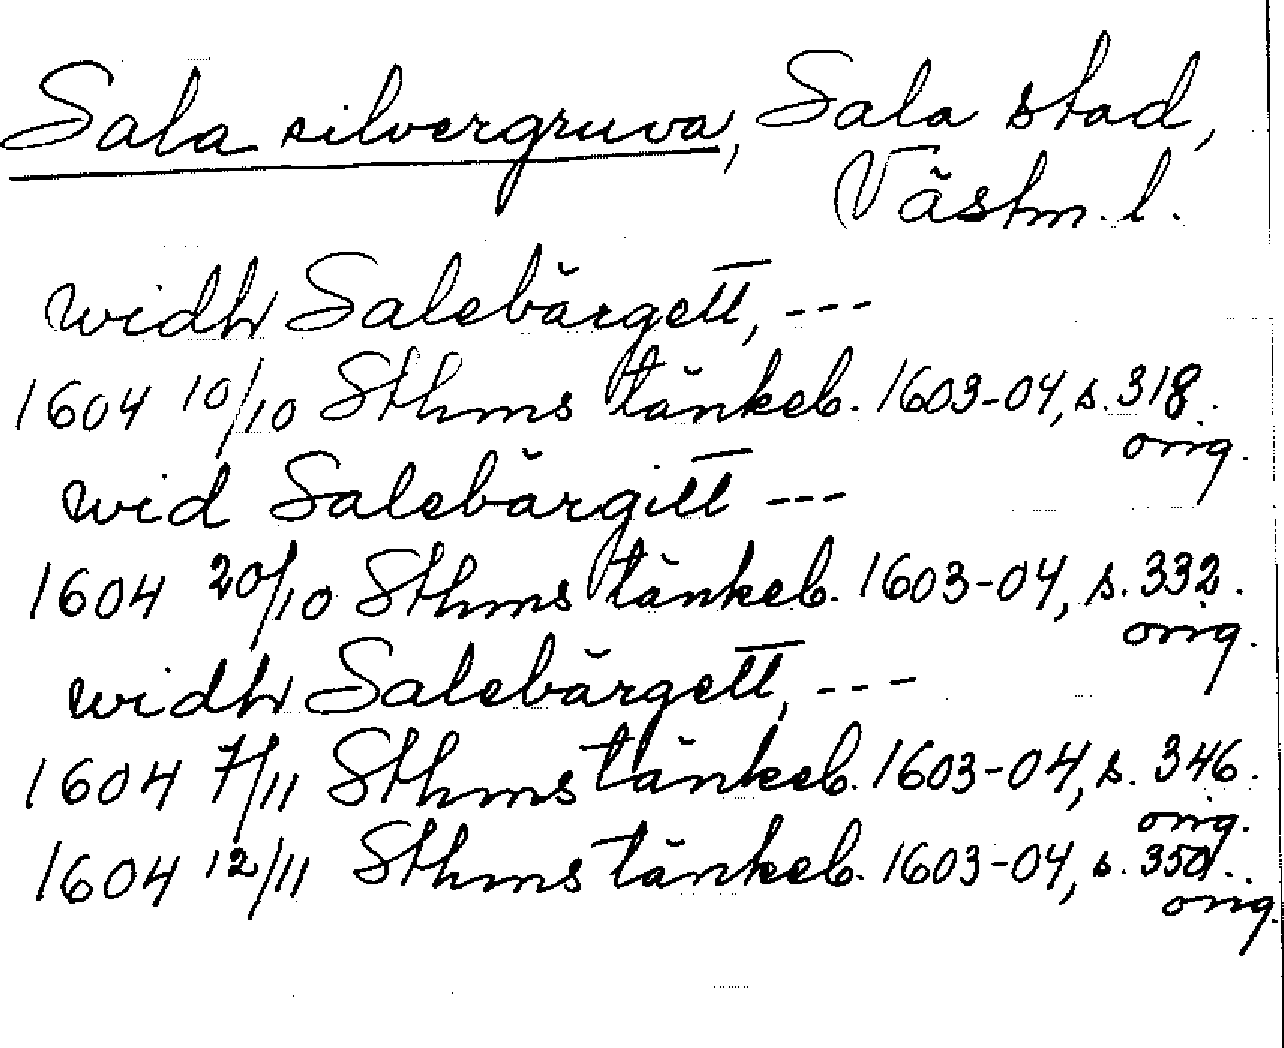 Sala silvergruva, Sala stad,
Västm. l.
widh Salebärgett, ---
1604 10/10 Sthms tänkeb. 1603-04, s. 318.
orig.
wid Salebärgitt ---
1604 20/10 Sthms tänkeb. 1603-04, s. 332.
orig.
widh Salebärgett, ---
1604 7/11 Sthms tänkeb. 1603-04, s. 346.
orig.
1604 12/11 Sthms tänkeb. 1603-04, s. 350.
orig.